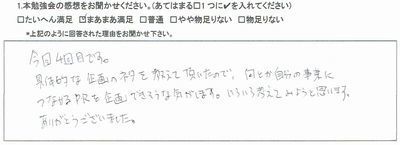 1.本勉強会の感想をお聞かせください。(あてはまる□1つに✔を入れてください)
□たいへん満足 ☑まあまあ満足 □普通 □やや物足りない □物足りない
*上記のように回答された理由をお聞かせ下さい。
今回4回目です。
具体的な企画のネタを教えて頂いたので、何とか自分の事業に
つなげる 企画できそうな気がします。いろいろ考えてみようと思います。
ありがとうございました。